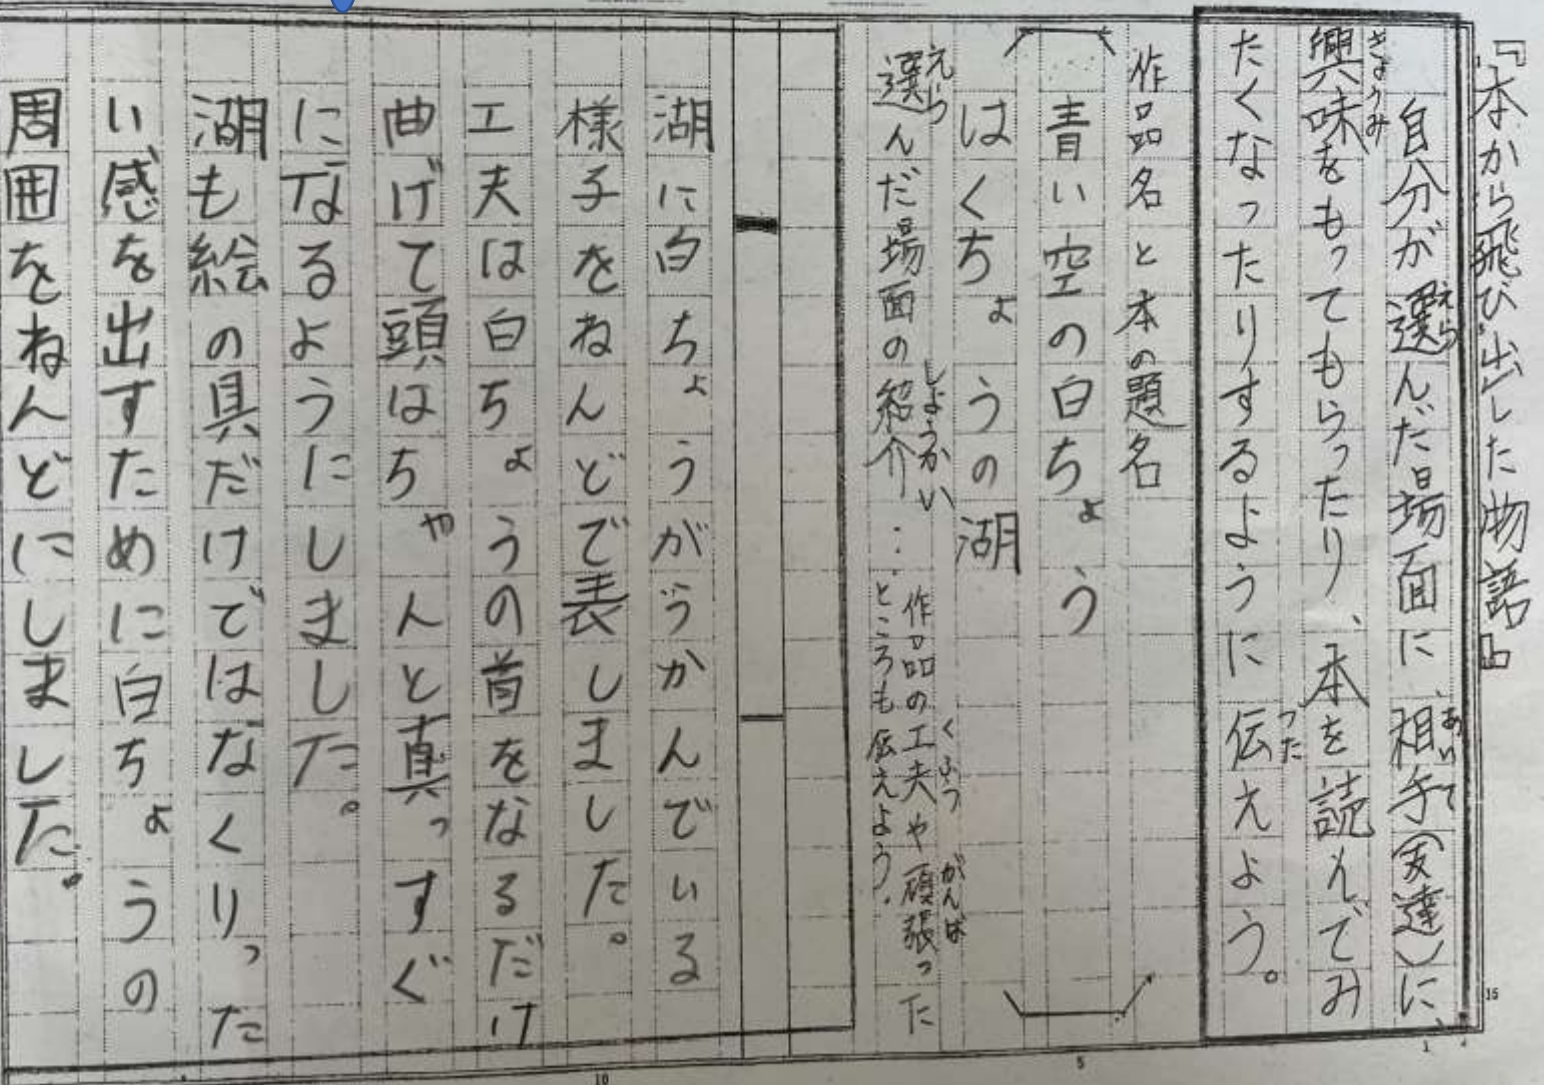 『本から飛び出した物語』
自分が選んだ場面に、相手(友達)に、
興味をもってもらったり、本を読んでみ
たくなったりするように伝えよう。
作品名と本の題名
青い空の白ちょう
はくちょうの湖
選んだ場面の紹介…作品の工夫や頑張った
ところも伝えよう。
湖に白ちょうがうかんでいる
様子をねんどで表しました。
工夫は白ちょうの首をなるだけ
曲げて頭はちゃんと真っすぐ
になるようにしました。
湖も絵の具だけではなくりった
い感を出すために白ちょうの
周囲をねんどにしました。